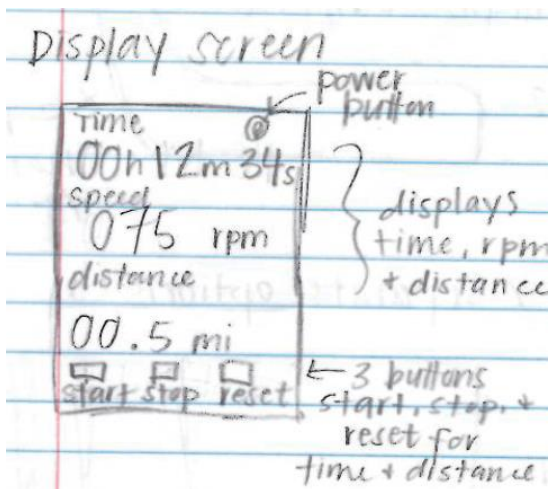 Display screen
power
button
Time
00h 12m 34s
speed
075 rpm
distance
00.5 mi
start stop reset
displays
time, rpm
+ distance
3 buttons
start, stop, +
reset for
time + distance